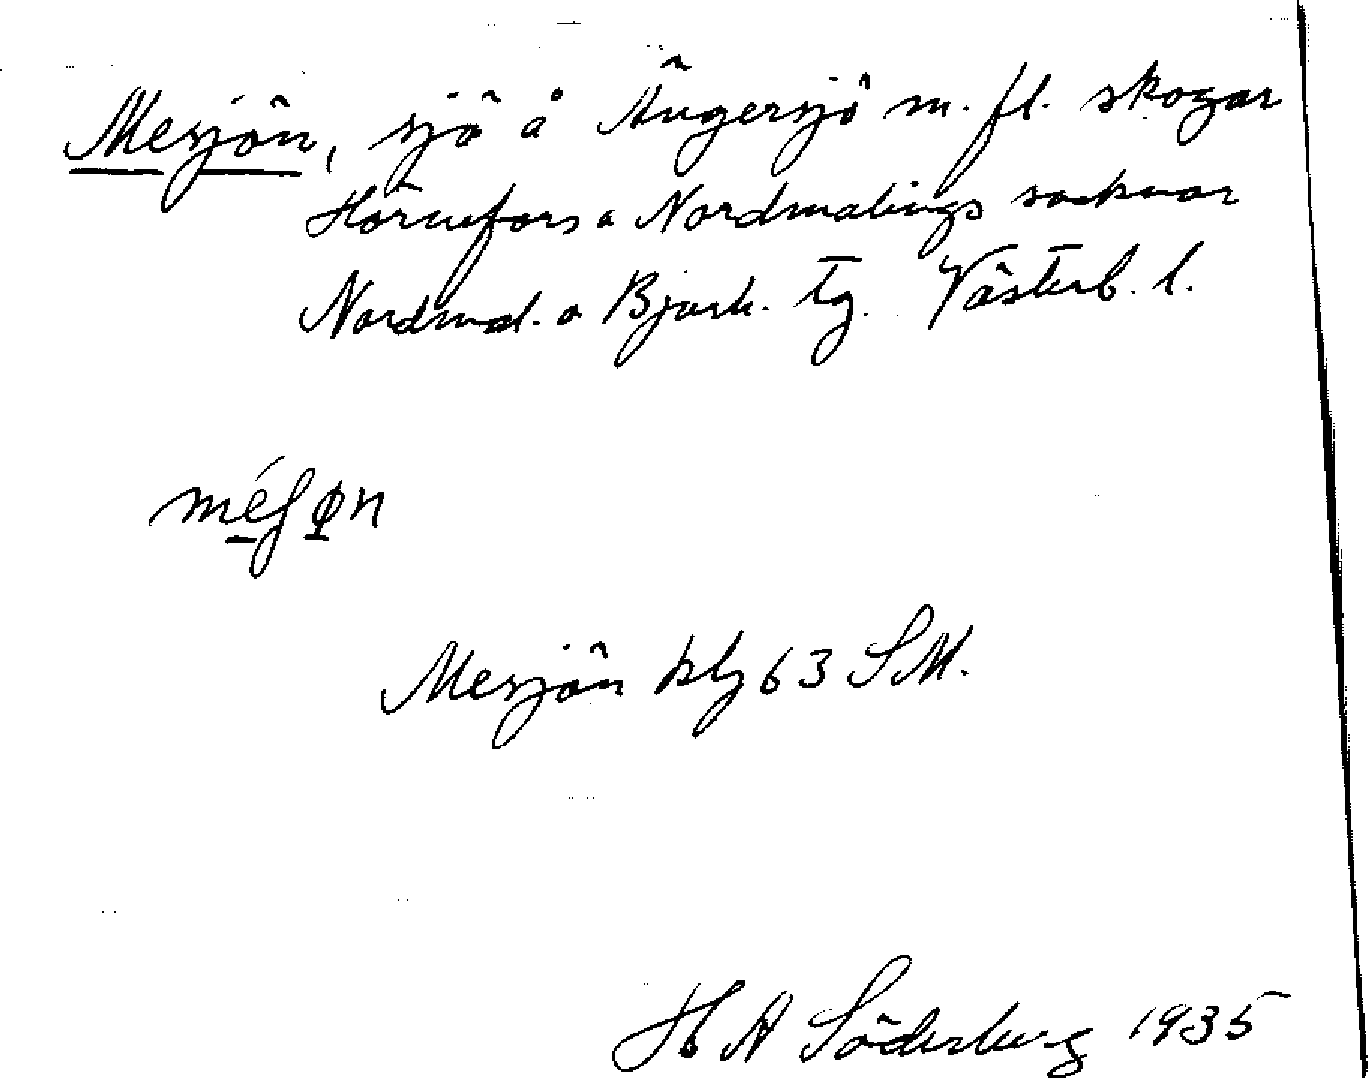 Mesjön, sjö å Ängersjö m. fl. skogar
Hörnefors o Nordmalings socknar
Nordmal. o Bjurh. tg. Västerb. l.
méʃøn
Mesjön kbl 63 SM.
H A Söderberg 1935